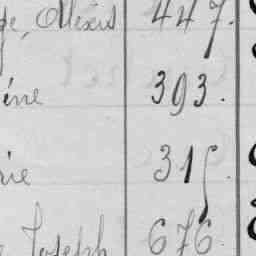 de, Alexis 447.
ène 393.
rie 315
Joseph 676.